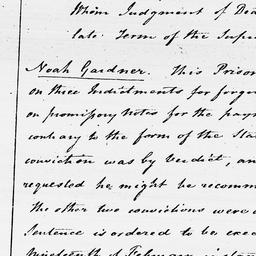 Whom Judgment of Dea
late Term of the Supe
Noah Gardner. This Prison
on three Indictments for forge
on promissory Notes for the pay
contrary to the form of the Sta
conviction was by Verdict, an
requested he might be recomm
the other two convictions were
Sentence is ordered to be exec
nineteenth of February